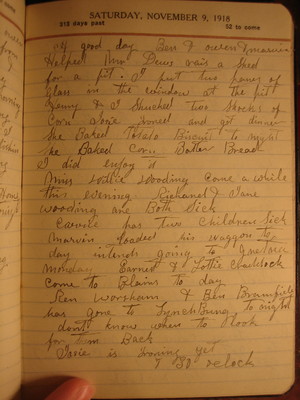 SATURDAY, NOVEMBER 9, 1918
313 days past 52 to come
A good day Ben & owen & marvin
Helped Mr Dews rais a Shed
for a pit. I put two panes of
Glass in the window at the pit
Jenny & I Shucked Two Shocks of
Corn Josie Ironed and got dinner
She Baked Potato Biscuit to night
She Baked Corn Batter Bread
I did enjoy it
Miss Lottie Wooding Come a while
this evening. Richard & Jane
Wooding are Both Sick
Carrie has two Children Sick
Marvin loaded his waggon to
day intends going to Gretna
Monday Earnest & Lottie Chaddock
come to Plains to day
Ben Worsham & Ben
has gone to Lynchburg to night
dont know when to look
for Em Back
Josie is Ironing yet
7 30 oclock